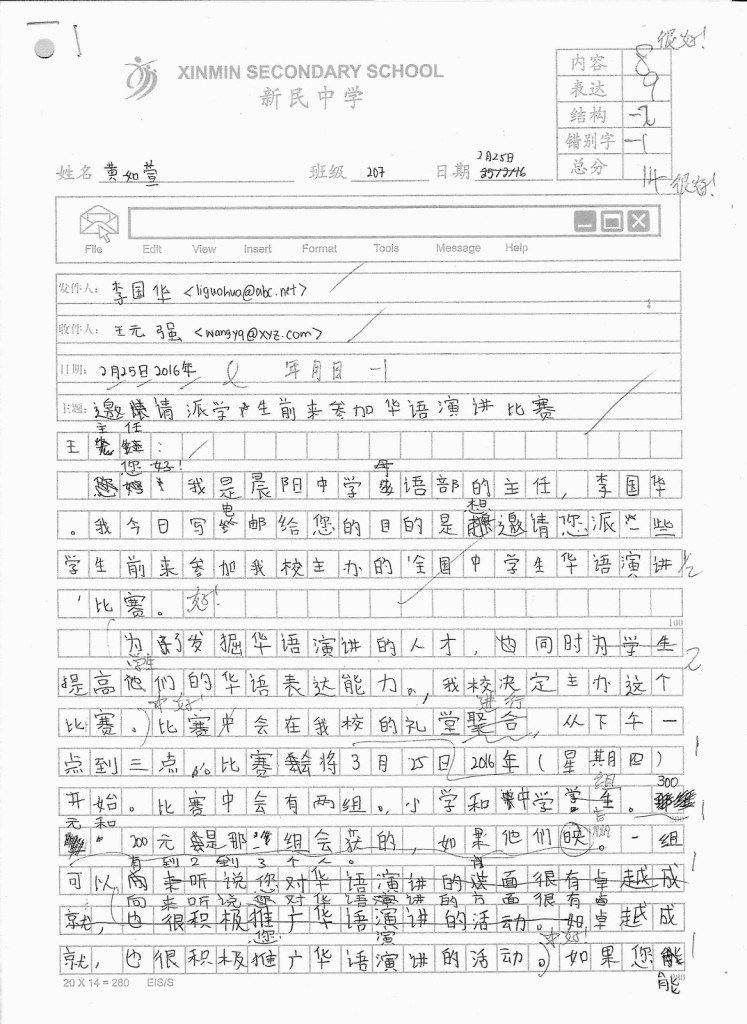 XINMIN SECONDARY SCHOOL
新民中学
很好!
内容 8
表达 9
结构 -2
错别字 -1
总分 14 很好!
姓名 黄如萱 班级 207 日期 2月25日
File Edit View Insert Format Tools Message Help
发件人: 李国华 <liguohua@abc.net>
收件人: 王元强 <wangyq@xyz.com>
日期: 2月25日2016年 年月日 -1
主题: 邀请派学生前来参加华语演讲比赛
王主任:
您好!我是晨阳中学母语部的主任,李国华
。我今日写电邮给您的目的是想邀请您派一些
学生前来参加我校主办的‘全国中学生华语演讲
’比赛。好!
100
为了发掘华语演讲的人才,也同时为学生
学生
提高他们的华语表达能力。,我校决定主办这个
中好! 进行
比赛。比赛中会在我校的礼堂聚合,从下午一
点到三点。比赛会将3月25日2016年(星期四)
组
开始。比赛中会有两组。,小学和中学生。300
元和200元是那些组会获的,如果他们映。一组
赢
可以有到2到3个人。
向来听说您对华语演讲的方面很有卓越成
就,也很积极推广华语演讲的活动。如卓越成
您 演 中好!
就,也很积极推广华语演讲的活动。如果您能
20 X 14 = 280 EIS/S
280